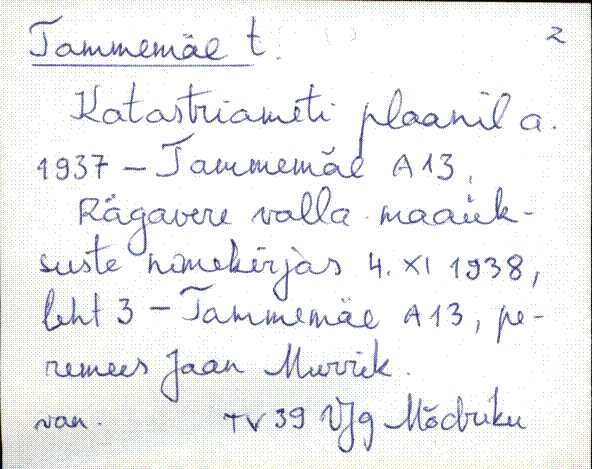 Tammemäe t. 2
Katastriameti plaanil a.
1937 – Tammemäe A13,
Rägavere valla maaük-
suste nimekirjas 4. XI 1938,
leht 3 – Tammemäe A13, pe-
remees Jaan Murrik.
van. TV 39 VJg Mõdriku